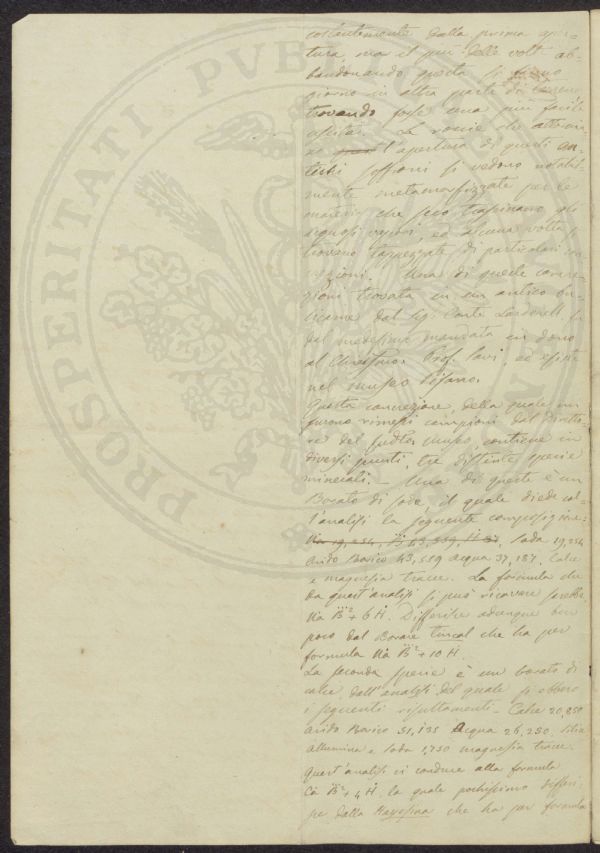 costantemente dalla prima aper-
tura, ma il più delle volte ab-
bandonando questa si fanno
giorno in altra parte di terreno
trovando forse una più facile
uscita. Le roccie che attornia-
no l'apertura di questi an-
tichi soffioni si vedono notabil-
mente metamorfizzate per le
materie che seco trascinano gli
acquosi vapori, ed alcuna volta si
trovano tappezzate di particolari con-
crezioni. Una di queste concre-
zioni trovata in un antico fu-
micante dal Sig. Conte Larderell fu
dal medesimo mandata in dono
al Chiarissimo Prof. Savi, ed esiste
nel museo Pisano.
Questa concrezione, della quale mi
furono rimessi campioni dal Dirretto-
re del sudto museo, contiene in
diversi punti, tre distinte specie
minerali. Una di queste è un
Borato di soda, il quale diede col-
l'analisi la seguente composizione:
Na 19,254, B 43,559, H 37, Soda 19,254
Acido Borico 43,559 Acqua 37,187. Calce
e magnesia tracce. La formula che
da quest'analisi si può ricavare sarebbe
Na B² + 6 H. Differisce adunque ben
poco dal Borace tincal che ha per
formula Na B² + 10 H.
La seconda specie è un borato di
calce dall'analisi del quale si ebbero
i seguenti risultamenti - Calce 20,850
Acido Borico 51,135 Acqua 26,250. Silice
Allumina e Soda 1,750 magnesia tracce.
Quest'analisi ci conduce alla formula
Ca B² + 4 H. la quale pochissimo differi-
sce dalla Hayesina che ha per formula
PROSPERITATI PVBLI